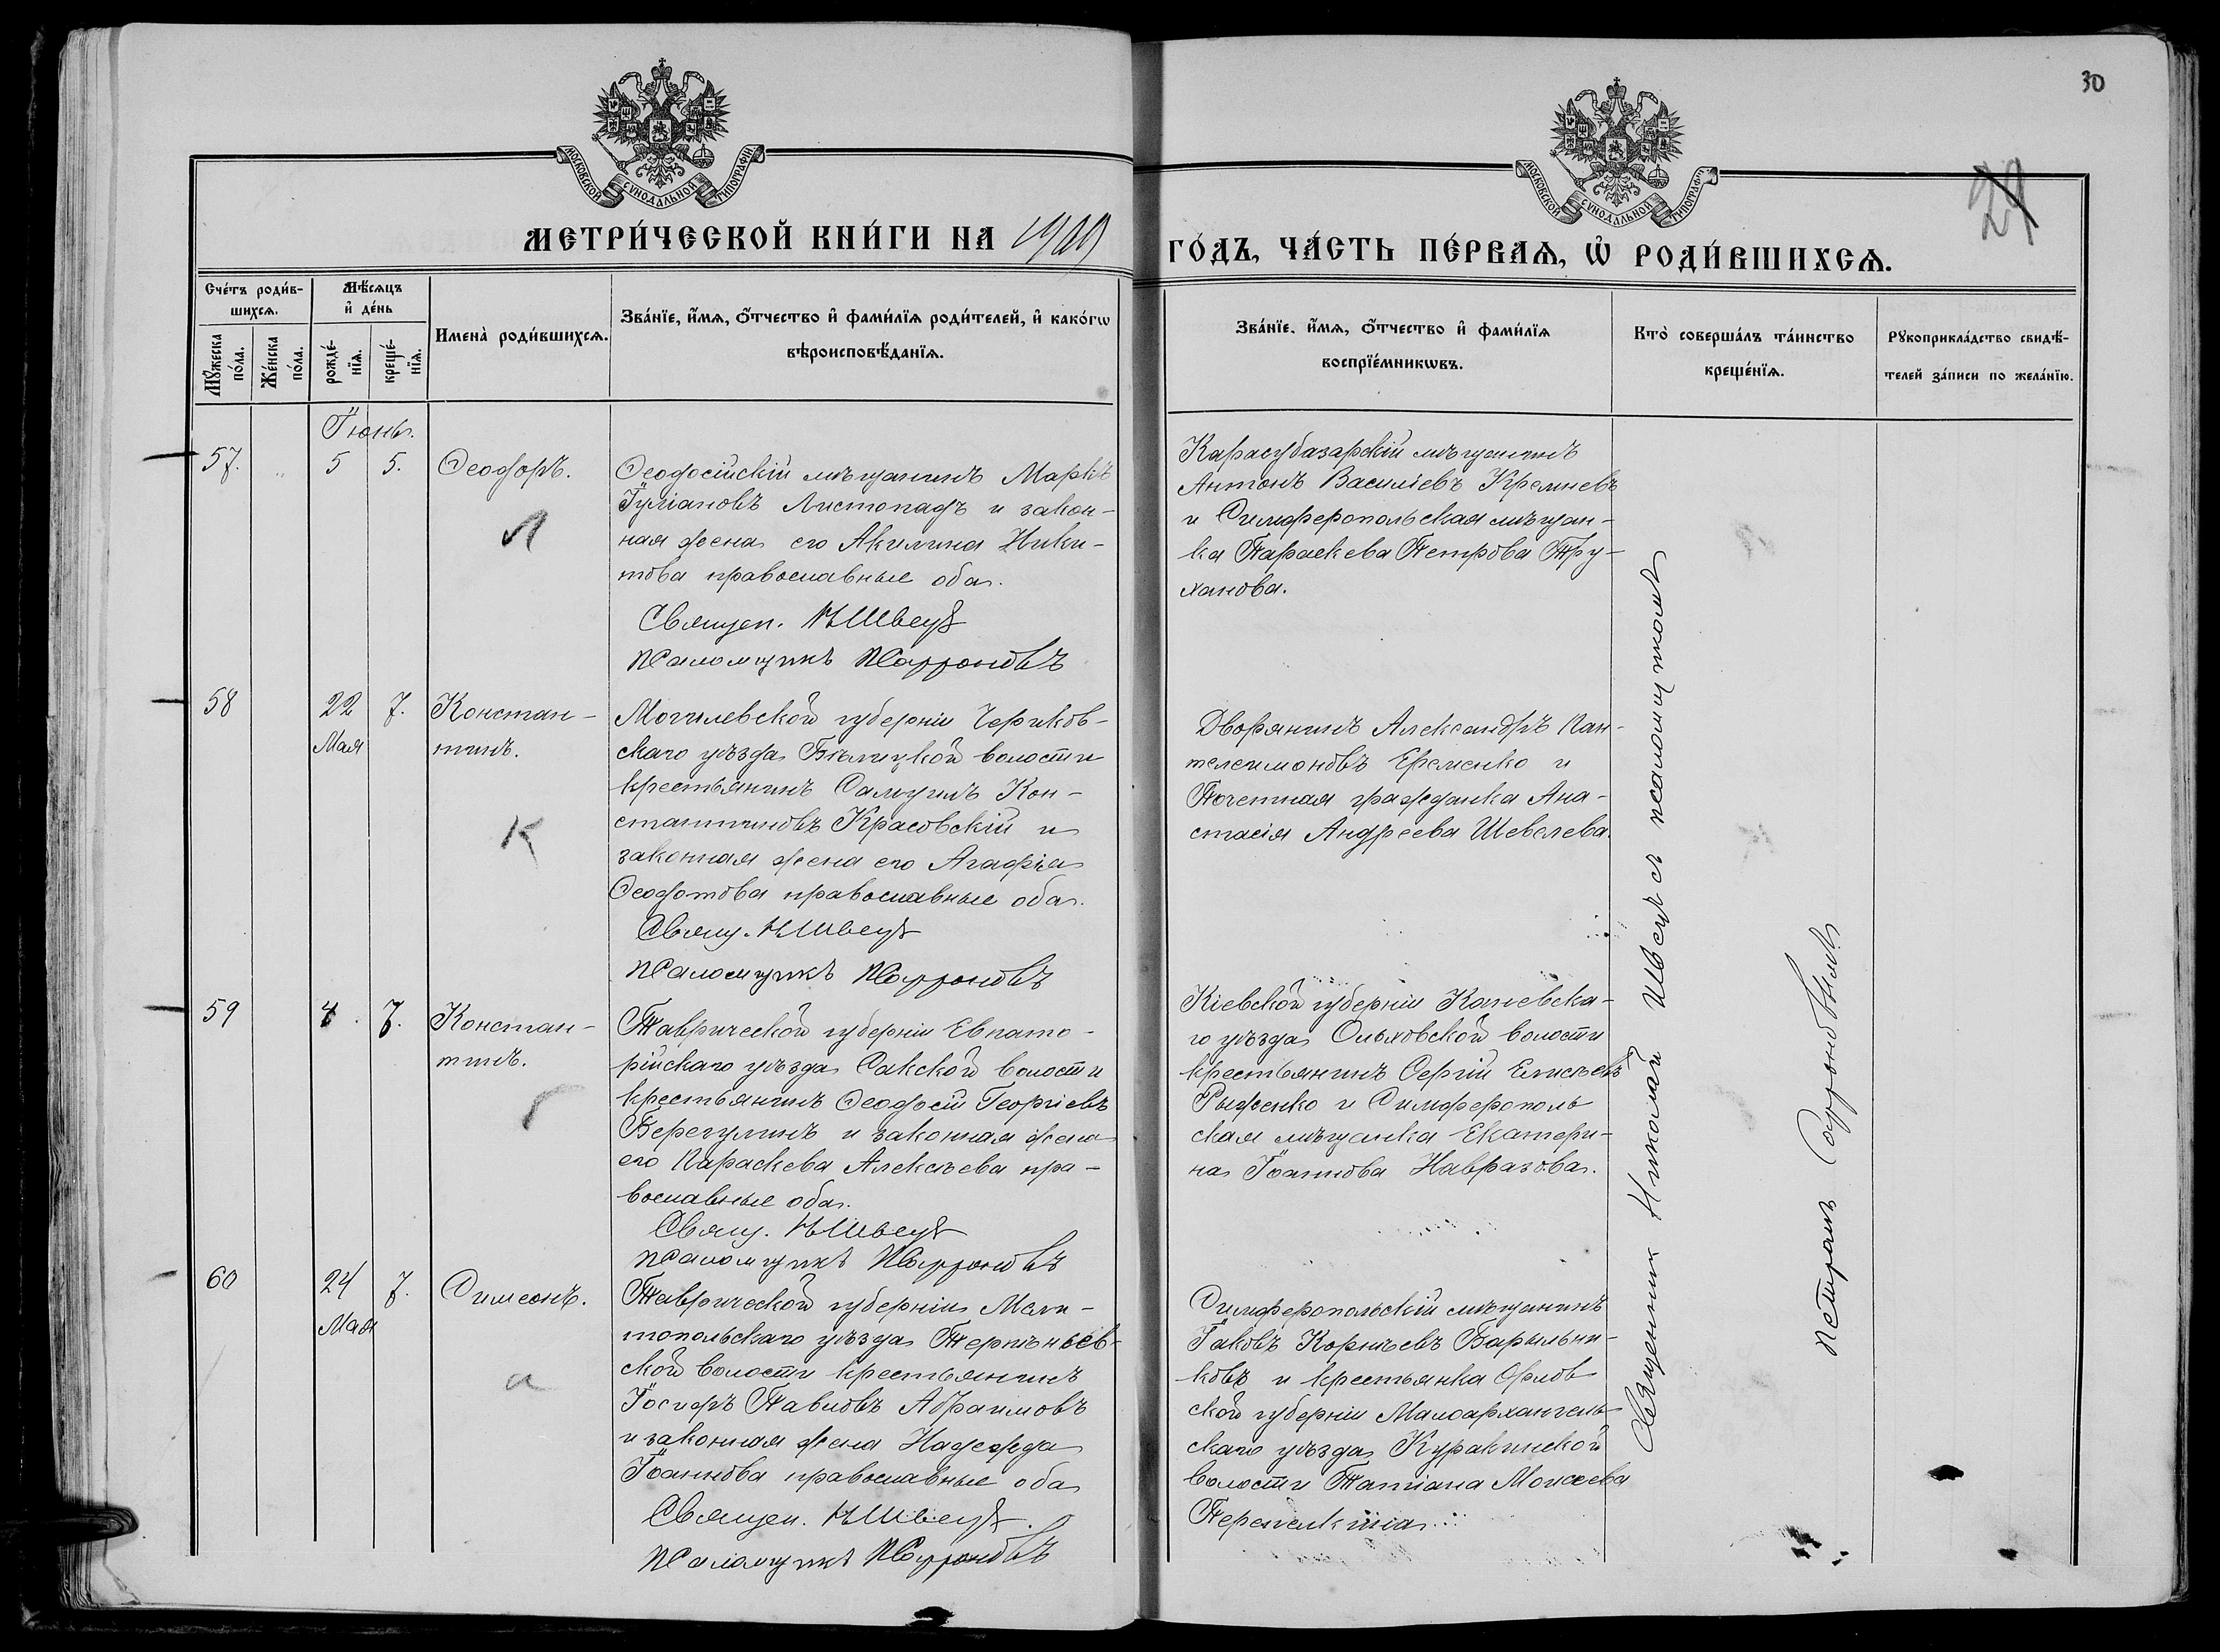 30
29
МОСКОВСКОЙ СѴНОДАЛЬНОЙ ТИПОГРАФІИ
МОСКОВСКОЙ СѴНОДАЛЬНОЙ ТИПОГРАФІИ
МЕТРИ́ЧЕСКОЙ КНИ́ГИ НА 1909 ГО́ДЪ, ЧА́СТЬ ПЕ́РВАѦ, Ѡ РОДИ́ВШИХСѦ.
Сче́тъ роди́в-
шихсѧ.
Мꙋ́жеска по́ла.
Же́нска по́ла.
Мѣ́сѧцъ
и҆ де́нь
рожде́-
нїѧ.
креще́-
нїѧ.
Имена̀ роди́вшихсѧ.
Зва́нїе, и҆́мѧ, ѻ҆́тчество и҆ фами́лїѧ роди́телей, и҆ како́гѡ
вѣроисповѣ́данїѧ.
Зва́нїе. и҆́мѧ, ѻ҆́тчество и҆ фами́лїѧ
воспрїе́мникѡвъ.
Кто̀ соверша́лъ та́инство
креще́нїѧ.
Рꙋкоприкла́дство свидѣ́-
телей за́писи по жела́нїю.
Іюнь.
57. " 5 5. Ѳеодоръ.
Л
Ѳеодосійскій мѣщанинъ Маркъ
Іуліановъ Листопадъ и закон-
ная жена его Акилина Ники-
това православные оба.
Священ. Н Швецъ
Псаломщикъ ПСафроновъ
Карасубазарскій мѣщанинъ
Антонъ Василіевъ Кремневъ
и Симферопольская мѣщан-
ка Параскева Петрова Тру-
ханова.
58 22 7. Констан-
Мая тинъ.
К
Могилевской губерніи Чериков-
скаго уѣзда Бѣлицкой волости
крестьянинъ Самуилъ Кон-
стантиновъ Красовскій и
законная жена его Агафія
Ѳеодотова православные оба.
Свящ. Н Швецъ
Псаломщикъ ПСафроновъ
Дворянинъ Александръ Пан-
телеимоновъ Еременко и
Почетная гражданка Ана-
стасія Андреева Шевелева.
59 4. 7. Констан-
тинъ.
Таврической губерніи Евпато-
рійскаго уѣзда Сакской волости
крестьянинъ Ѳеодосій Георгіевъ
Берегулинъ и законная жена
его Параскева Алексѣева пра-
вославные оба.
Свящ. Н Швецъ
Псаломщикъ ПСафроновъ
Кіевской губерніи Каневска-
го уѣзда Ольховской волости
крестьянинъ Сергій Елисѣевъ
Рыженко и Симферополь
ская мѣщанка Екатери-
на Іоаннова Навразова.
60 24 7. Симеонъ.
Мая
а
Таврической губерніи Мели-
топольскаго уѣзда Терпѣньев-
ской волости крестьянинъ
Іосифъ Павловъ Абраимовъ
и законная жена Надежда
Іоаннова православные оба
Священ. Н Швецъ.
Псаломщикъ ПСафроновъ
Симферопольскій мѣщанинъ
Іаковъ Корнѣевъ Барыльни-
ковъ и крестьянка Орлов
ской губерніи Малоархангель-
скаго уѣзда Куракинской
волости Татіана Моисеева
Перепелкина.
Священник Николай Швецъ с псаломщиком
Петромъ Сафроновымъ